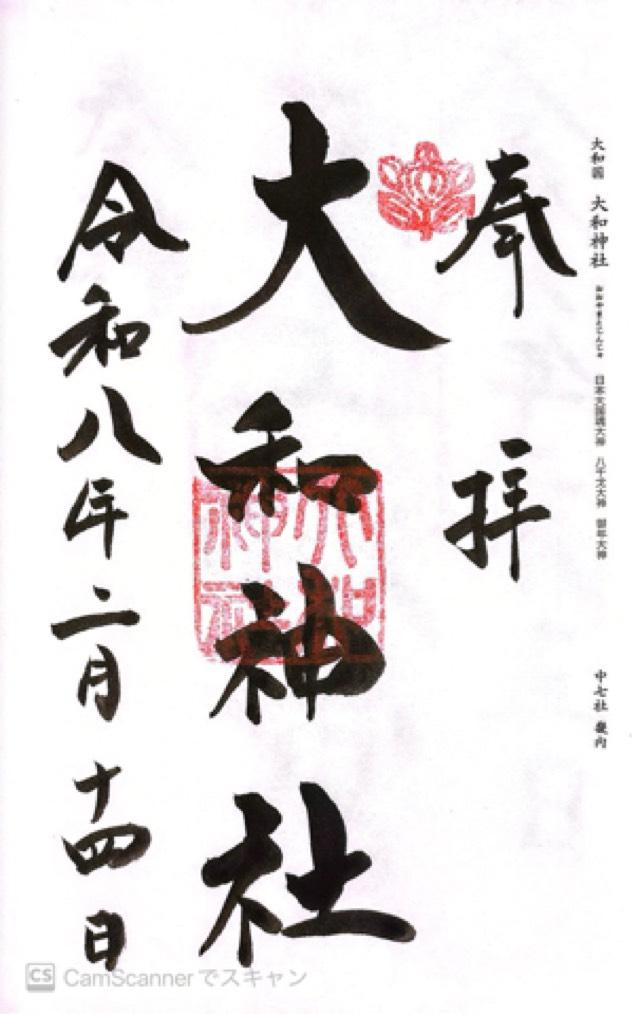 大和國　大和神社　おおやまとじんじゃ　日本大国魂大神　八千戈大神　御年大神　中七社　畿内
奉拝
大和神社
大和神社
令和八年二月十四日
CS CamScannerでスキャン